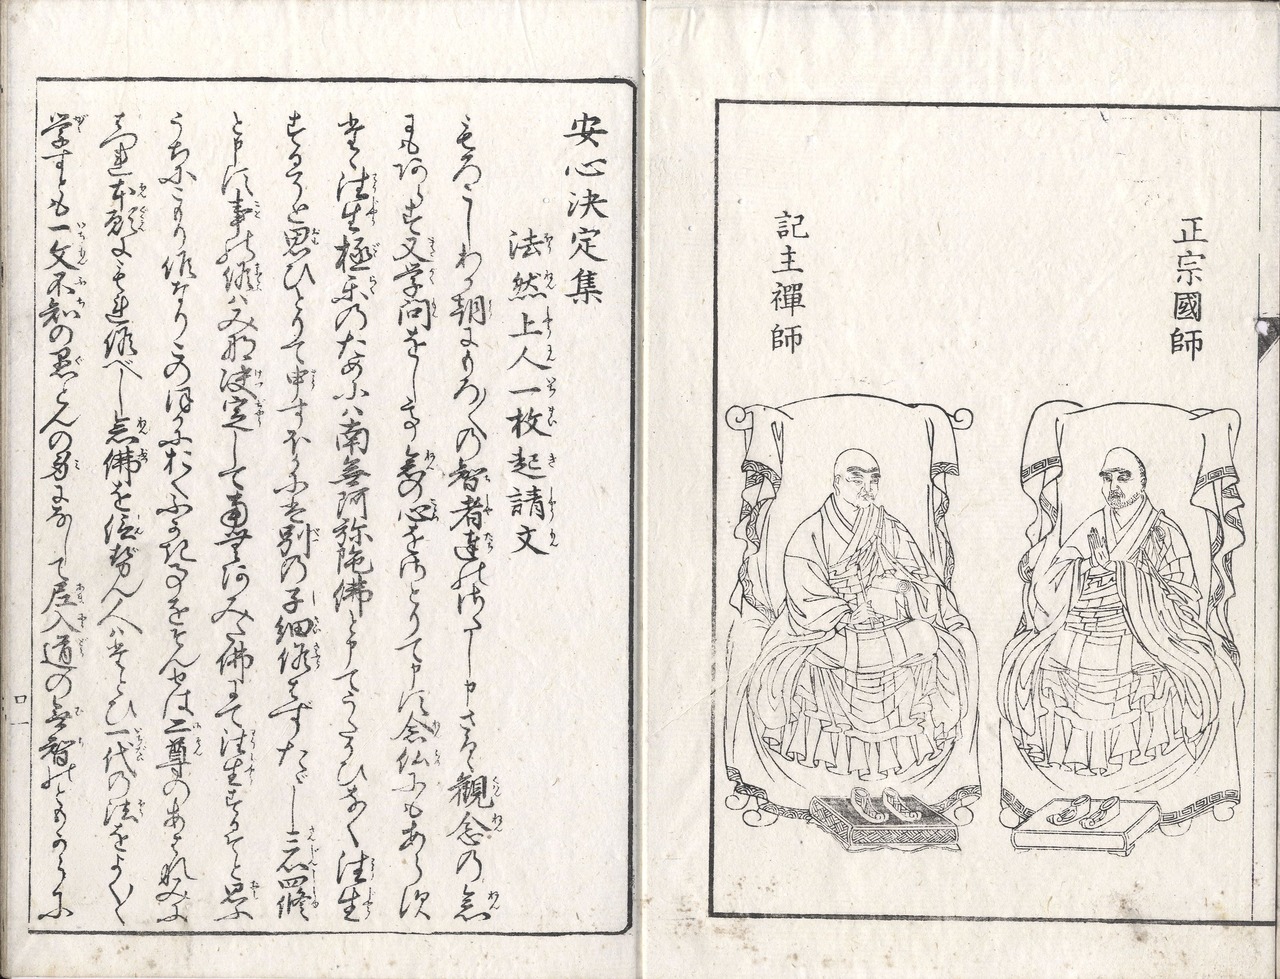 正宗國師
記主禪師
安心決定集
法然上人一枚起請文
もろこしわが朝にもろ〱の智者達のさたし申さるゝ觀念の念
にもあらす又学問をして念の心をさとりて申す念仏にもあらす
たゝ往生極楽のためにハ南無阿弥陀佛と申てうたかひなく往生
するそと思ひとりて申すほかにハ別の子細候はずたゞし三心四修
と申す事の候ハみな决定して南無阿みた佛にて往生するそと思ふ
うちにこもり候なりこのほかにおくふかき事をそんせは二尊のあはれみに
はつれ本願にもれ候べし念佛を信ぜん人ハたとひ一代の法をよく〱
学すとも一文不知の愚とんの身になして尼入道の無智のともからに